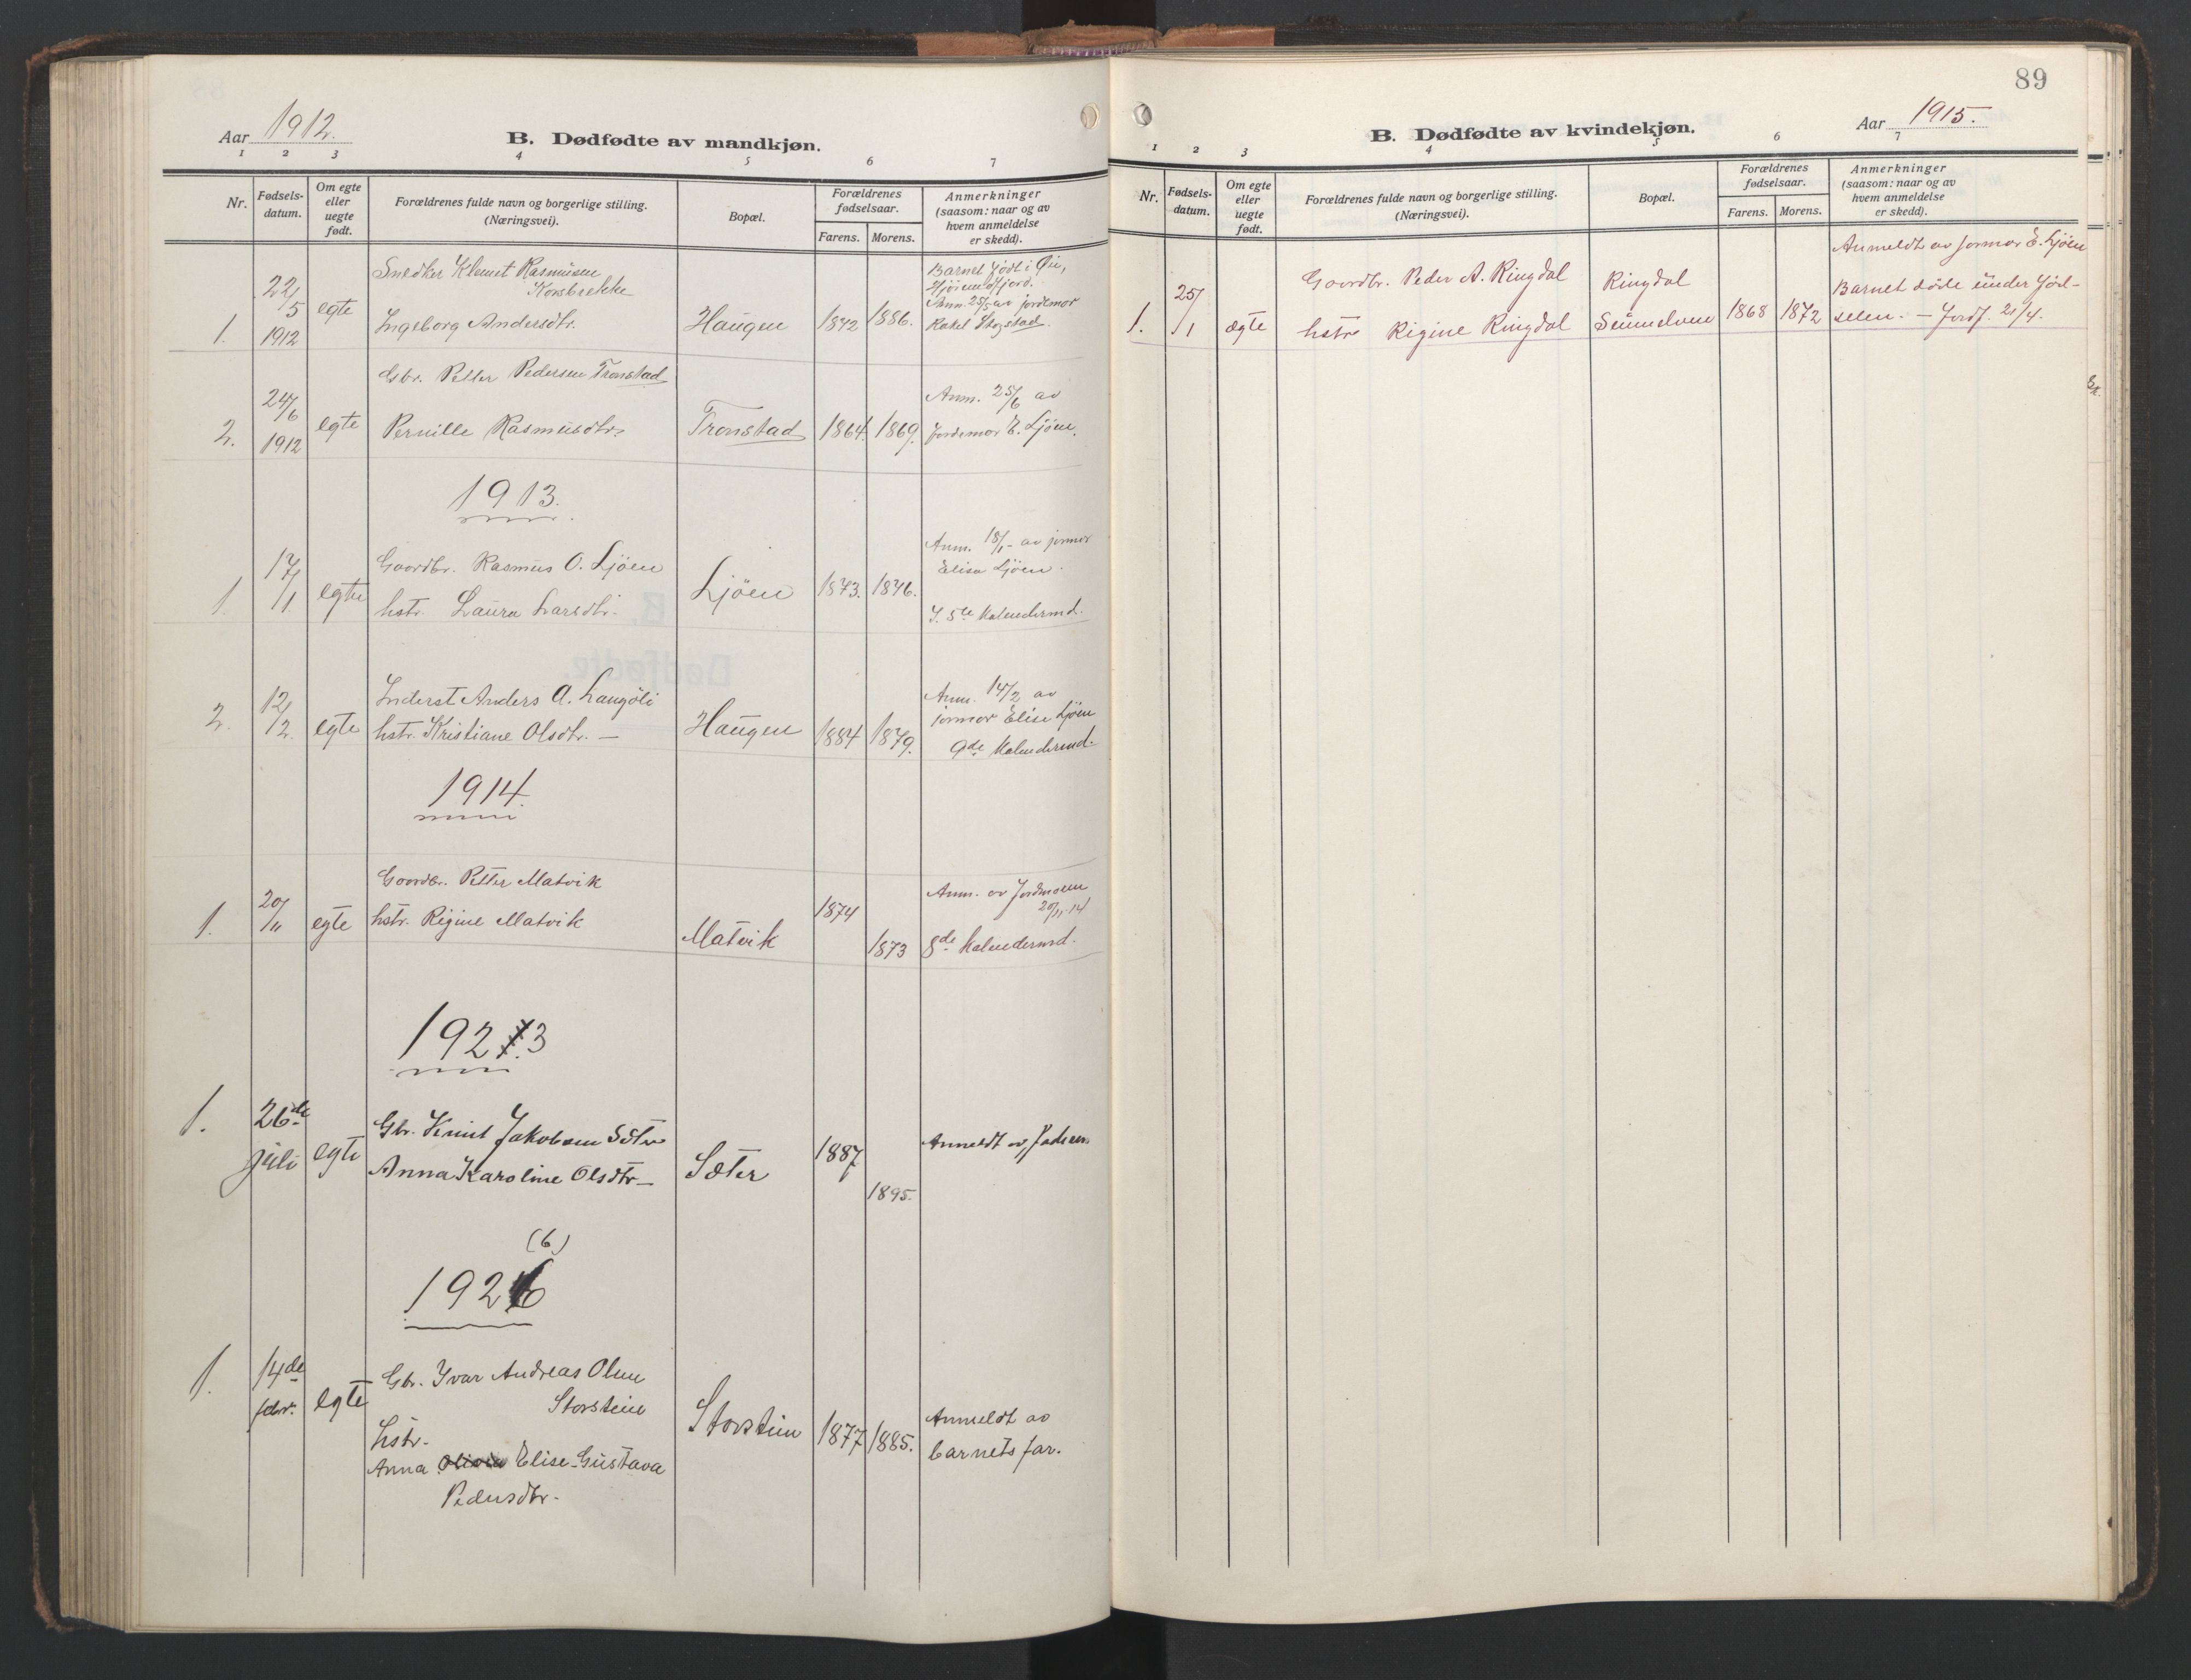 Aar 1912.
B. Dødfødte av mandkjøn.
1 2 3 4 5 6 7
Nr.
Fødsels-
datum.
Om egte
eller
uegte
født.
Forældrenes fulde navn og borgerlige stilling.
(Næringsvei).
Bopæl.
Forældrenes
fødselsaar.
Farens. Morens.
Anmerkninger
(saasom: naar og av
hvem anmeldelse
er skedd).
1. 22/5 1912 egte
Snedker Klemet Rasmusen
Korsbrekke
Ingeborg Andersdtr.
Haugen 1872 1886.
Barnet født i Øie,
Hjörundfjord.
Anm. 25/5 av jordemor
Rakel Skogstad.
2. 24/6 1912 egte
Gbr. Petter Pedersen Tronstad
Pernille Rasmusdtr.
Tronstad 1864. 1869.
Anm. 25/6 av
Jordemor E. Ljöen.
1913.
1. 17/1 egte
Gaardbr. Rasmus O. Ljöen
hstr. Laura Larsdtr.
Ljöen 1873. 1876.
Anm. 18/1 - av jormor
Elisa Ljöen.
I. 5te Kalendermd.
2. 12/2. egte
Inderst Anders A. Langöli
hstr. Kristiane Olsdtr. —
Haugen 1884 1879.
Anm. 14/2 av
jormor Elise Ljöen
9de Kalendermd.
1914.
1. 20/11 egte
Gaardbr. Petter Matvik
hstr. Regine Matvik
Matvik 1874 1873
Anm. av Jordmoren
20/11-14
8de Kalendermd.
1923
1. 26de juli egte
Gbr. Knut Jakobsen Sæter
Anna Karoline Olsdtr —
Sæter 1887 1895.
Anmeldt av faderen
(6)
1926
1. 14de febr. egte
Gbr. Ivar Andreas Olsen
Storstein
hstr.
Anna Olivia Elise-Gustava
Pedersdtr.
Storstein 1877 1885.
Anmeldt av
barnets far.
89
B. Dødfødte av kvindekjøn.
Aar 1915.
1 2 3 4 5 6 7
Nr.
Fødsels-
datum.
Om egte
eller
uegte
født.
Forældrenes fulde navn og borgerlige stilling.
(Næringsvei).
Bopæl.
Forældrenes
fødselsaar.
Farens. Morens.
Anmerkninger
(saasom: naar og av
hvem anmeldelse
er skedd).
1. 25/1 ægte
Gaardbr. Peder A. Ringdal
hstr Regine Ringdal
Ringdal
Sunnelven
1868 1872
Anmeldt av jormor E. Ljöen
Barnet døde under föd-
selen. — Jordf. 21/4.